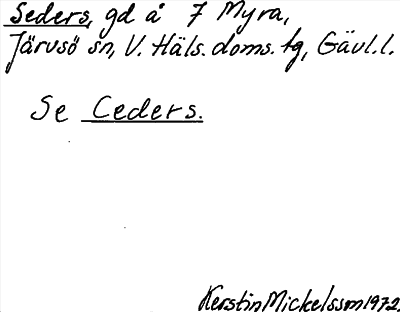 Seders, gd å 7 Myra,
Järvsö sn, V. Häls. doms. tg, Gävl.l.
Se Ceders.
Kerstin Mickelsson 1972.